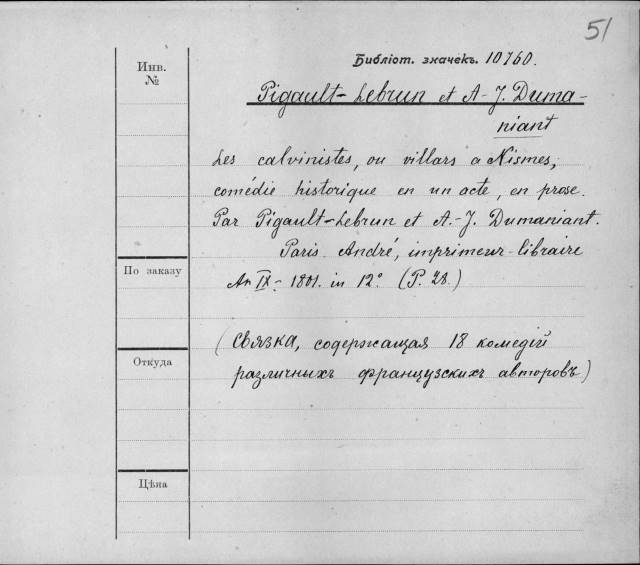 51
Библіот. значекъ. 10760.
Инв.
№
Pigault-Lebrun et A-J. Duma-
niant
Les calvinistes, ou villars a Nismes,
comédie historique en un acte, en prose.
Par Pigault-Lebrun et A.-J. Dumaniant.
Paris. André, imprimeur-libraire
An IX - 1801. in 12° (P. 28.)
По заказу
(Связка, содержащая 18 комедій
различныхъ французскихъ авторовъ)
Откуда
Цѣна